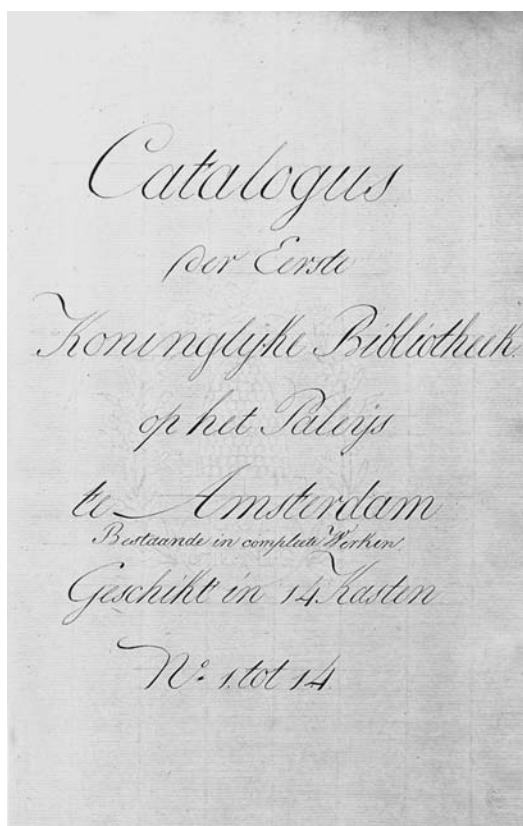 Catalogus
der Eerste
Koninglijke Bibliotheek
op het Paleijs
te Amsterdam
Bestaande in compleete Werken
Geschikt in 14 Kasten
N.o 1. tot 14.